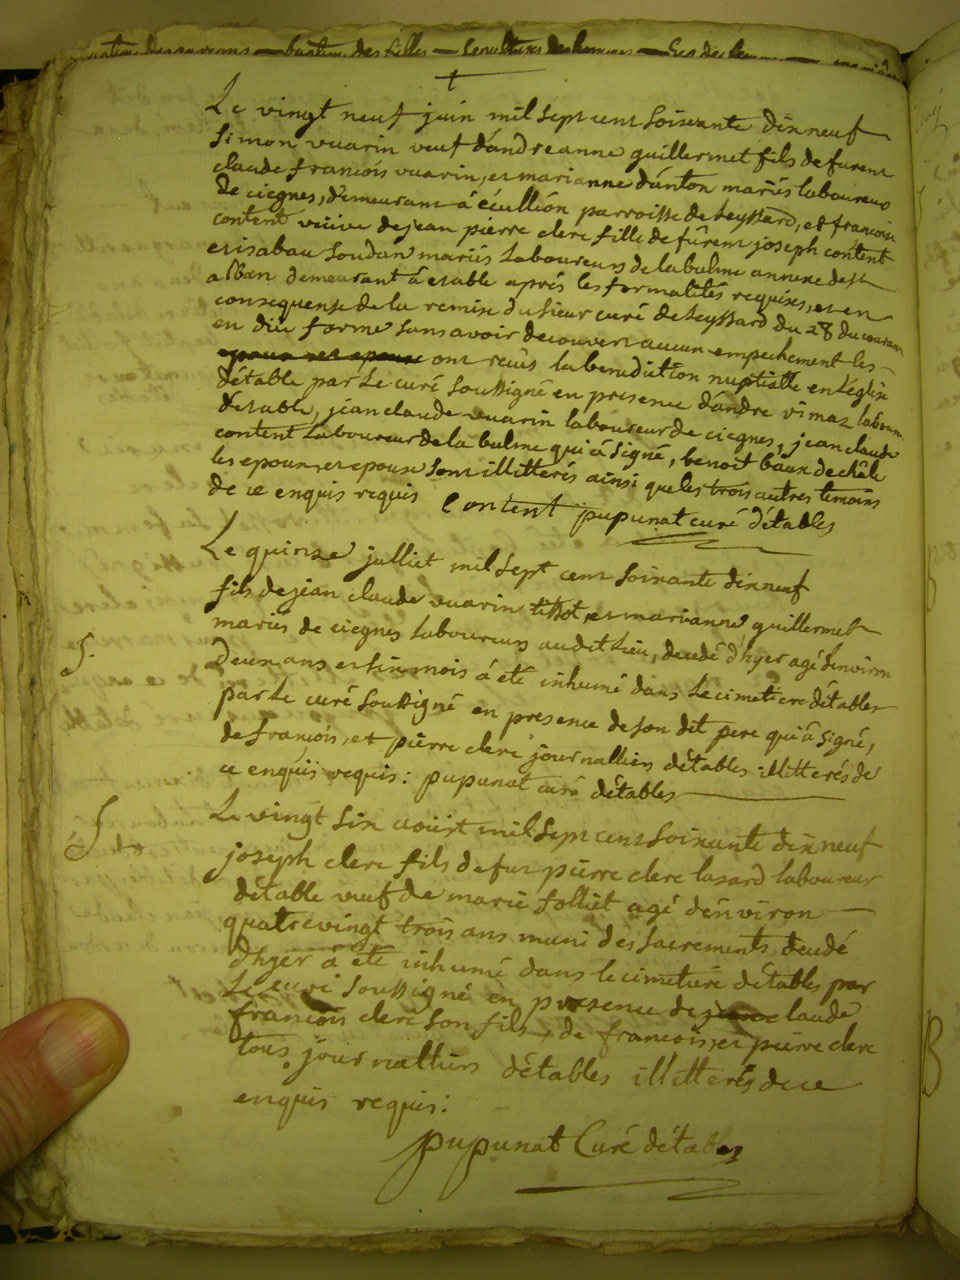 batème des garcons — batème des filles — Sepultures des hommes — Des femmes —
Le vingt neuf juin mil sept cent soixante dix neuf
Simon vuarin veuf d'andreanne guillermet fils de furent
claude francois vuarin, et marianne d'anton mariés laboureurs
de ciegnes, demeurant à écullion parroisse de Leyssard, et francoise
content veuve de jean pierre clerc fille de fûrent joseph content
et isabau soudan mariés Laboureurs de la balme annexe de st
alban demeurant à etable aprés les formalités requises, et en
consequense de la remise du sieur curé de Leyssard du 28 du courant
en due forme sans avoir decouvert aucun empechement les
epoux et epouse ont recûs la benediction nuptialle en L'église
détable par Le curé Soussigné en presence d'andre vimaz laboureur
detable, jean claude vuarin laboureur de ciegnes, jean claude
content Laboureur de la balme qui à signé, benoit baux de châle
les epoux et epouse sont illitterés ainsi que les trois autres temoins
de ce enquis requis Content pupunat curé détables
Le quinze julliet mil sept cent soixante dix neuf
fils de jean claude vuarin tissot, et marianne guillermet
mariés de ciegnes Laboureurs audit Lieu, decedé d'hyer agé d'environ
Deux ans et six mois à été inhumé dans Le cimetiere détables
par Le curé Soussigné en presence de son dit pere qui à signé,
de francois, et pierre clerc journalliers détables illitterés de
ce enquis requis: pupunat curé détables
S.
Le vingt six août mil sept cent soixante dix neuf
joseph clerc fils de fut pierre clerc lasard laboureur
détable veuf de marie folliet agé d'environ
quatre vingt trois ans muni des sacrements decedé
d'hyer à été inhumé dans le cimetiere détables par
Le curé Soussigné en presence de claude
francois clerc son fils, de francois, et pierre clerc
tous journalliers détables illitterés de ce
enquis requis:
pupunat Curé détables